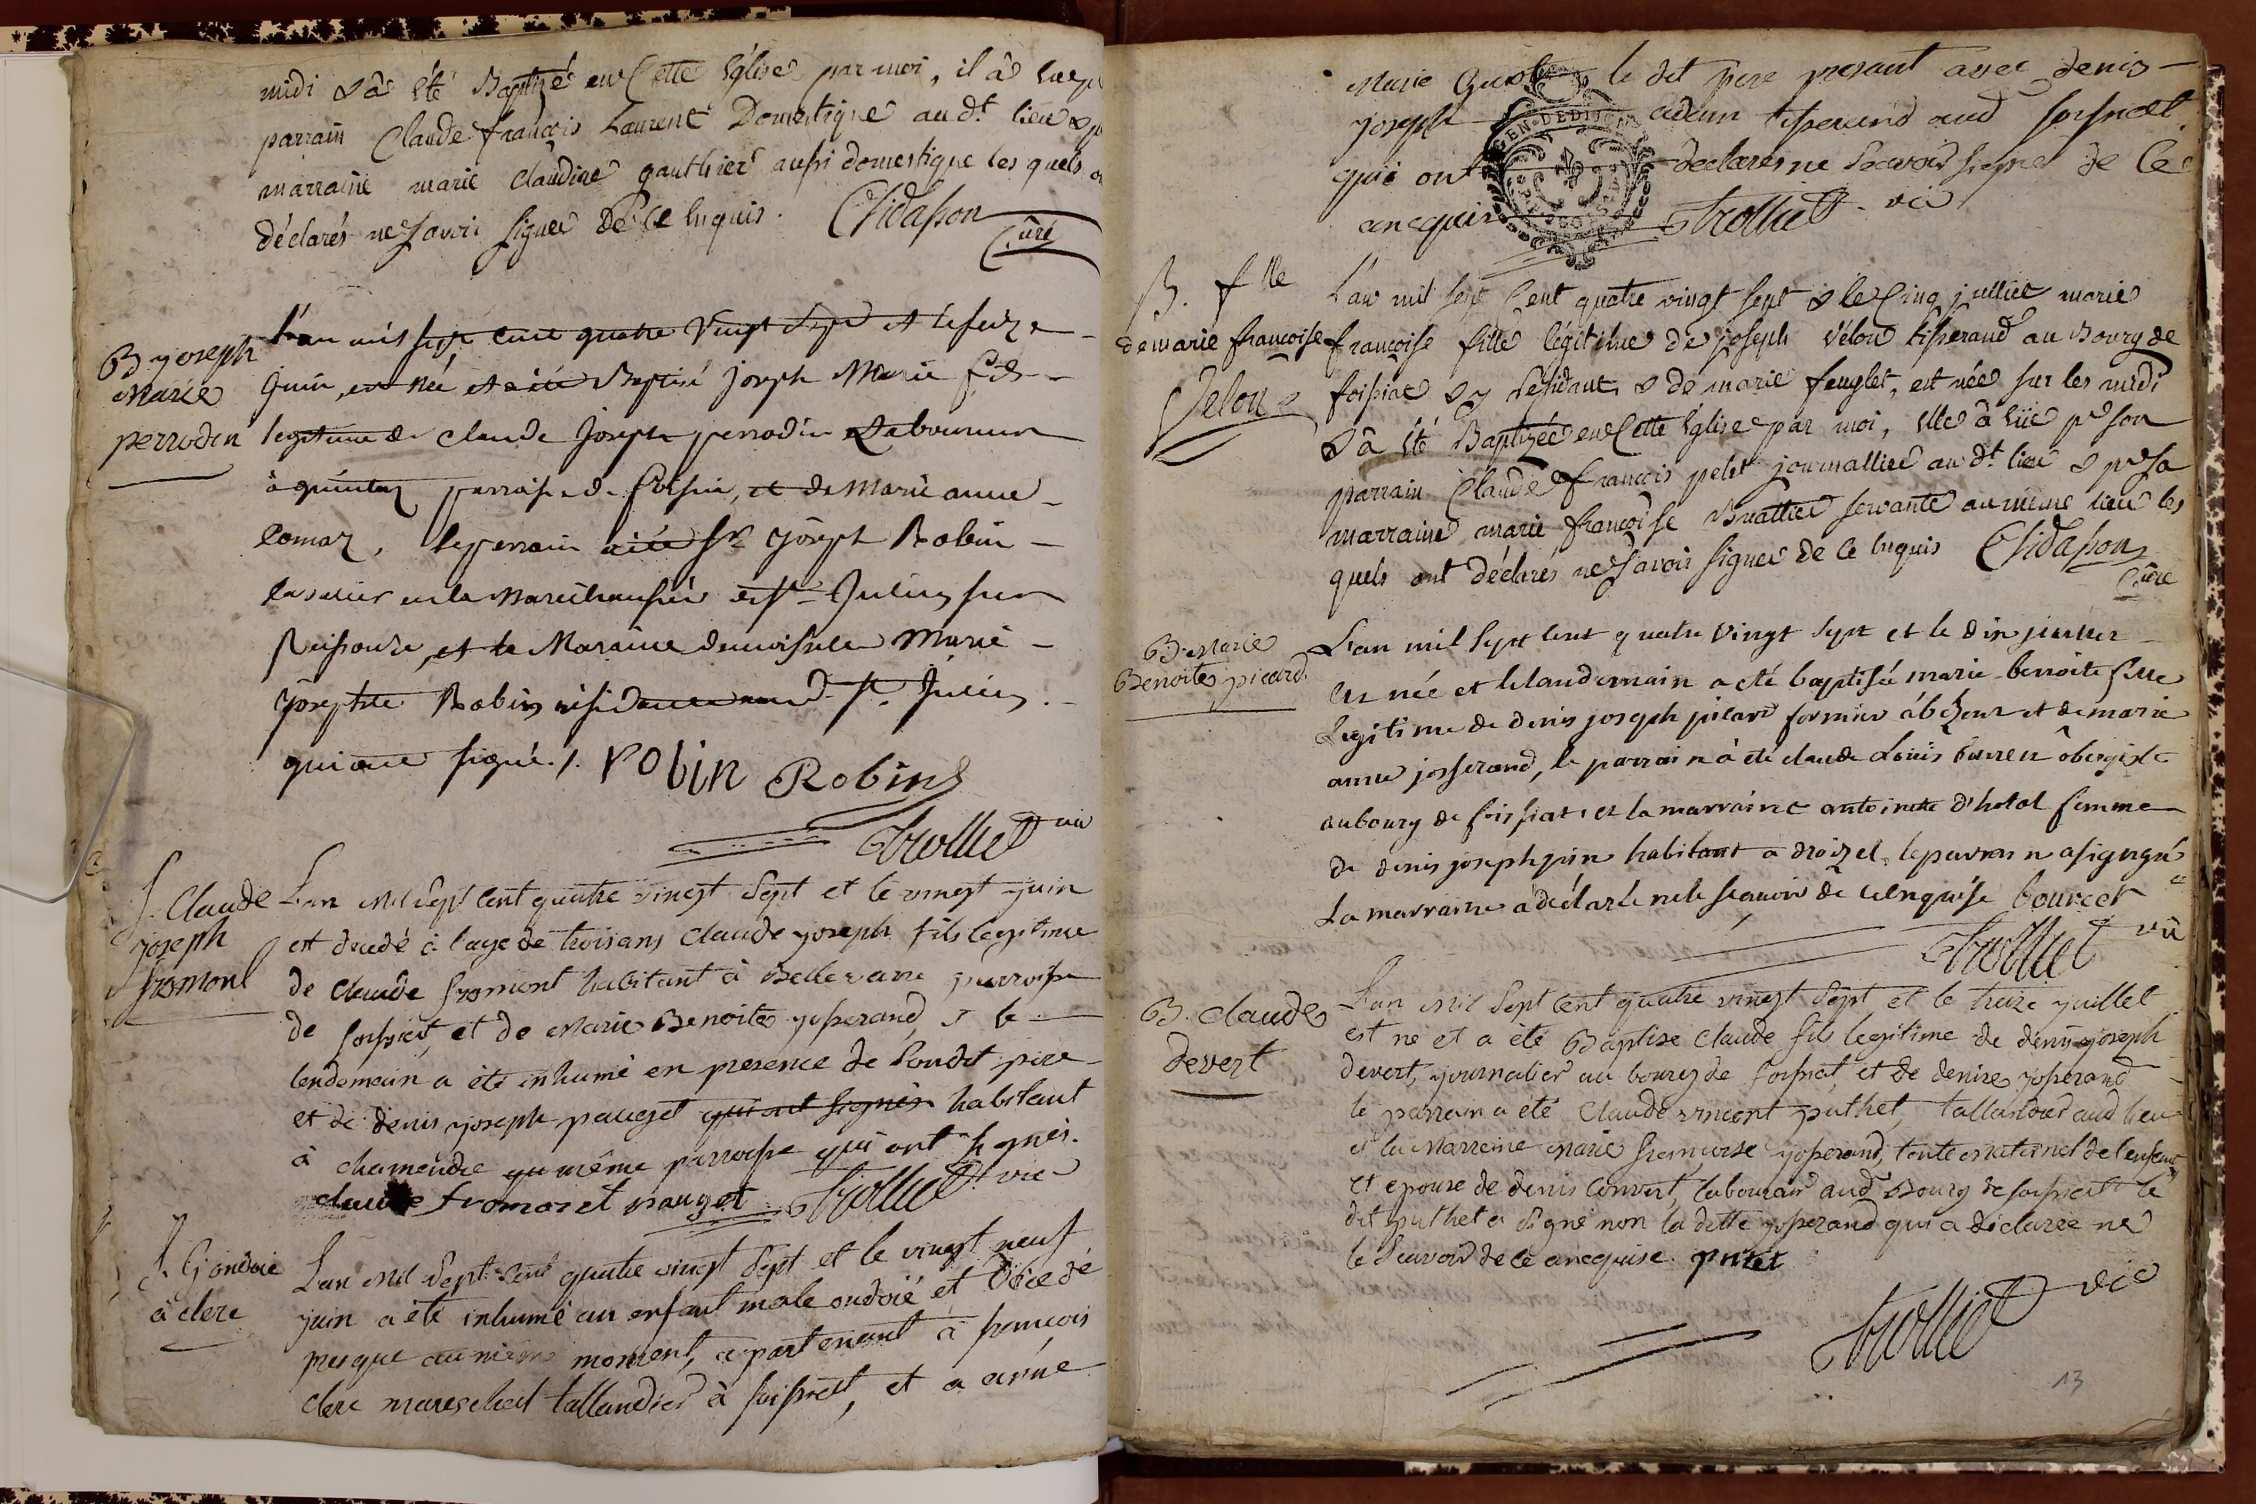 midi & â été Baptizé en Cette Eglise par moi, il â eu pr
parrain Claude françois Laurent Domestique au dt. lieu & pr
marraine marie claudine gauthier aussi domestique les quels
déclarés ne Savoir signer de Ce enquis. Chidasson
Curé
B. joseph
Marie
perrodin
L'an mil sept cent quatre vingt sept et le seize
juin, est né et a été Baptisé joseph Marie fils
legitime de claude joseph perrodin Laboureur
à parroisse de foissia, et de Marie anne
, le parrain a été Sr joseph Robin
cavalier en la Marechaussée de St Julien sur
Reissouze, et la Maraine demoiselle Marie
josephte Robin St. Julien.
qui ont signé./. robin Robin
Trolliet vic
S. Claude
joseph
fromont
L'an Mil Sept cent quatre vingt Sept et le vingt juin
est decedé à l'age de trois ans Claude joseph fils legitime
de Claude fromont habitant à Bellevavre parroisse
de foissiat, et de Marie Benoite josserand, & le
lendemain a été inhumé en presence de Sondit pere
et de denis joseph pauget qui ont signés habitant
à chamendre du même parroisse qui ont signés.
claude fromont pauget Trolliet vic
S. ondoié
à clerc
L'an Mil Sept Cent quatre vingt Sept et le vingt neuf
juin a été inhumé un enfant male ondoié et décedé
presque au même moment, apartenant à françois
clerc mareschal tallandier à foissiat, et a anne
Marie le dit pere presant avec denis
joseph adam tisserand aud foissiat
qui ont declarés ne Scavoir signer de Ce
ancquis Trolliet vic
B. flle
de marie françoise
Velon
L'an mil sept Cent quatre vingt sept & le Cinq juillet marie
françoise fille légitime de joseph Vélon tisserand au Bourg de
foissiat & y residant, & de marie feuglet, est née sur les midi
& â été Baptizée en Cette Eglise par moi, elle â eüe pr son
parrain Claude françois pelet journallier au dt. lieu & pr sa
marraine marie françoise Buattier servante au même lieu les
quels ont déclarés ne Savoir signer de Ce enquis Chidasson
Curé
B. Marie
Benoite picard
L'an mil sept cent quatre vingt sept et le dix juillet
est née et le landemain a été baptisée marie-benoite fille
Legitime de denis joseph picard fermier à et de marie
anne josserand, le parrain à été claude Louis bourcet obergiste
au bourg de foissiat, et la marraine antoinette d'hotal femme
de denis joseph pin habitant a droizel, le parrain a signé
La marraine a déclaré ne le scavoir de ce enquise bourcet
Trolliet vic
B. Claude
devert
L'an Mil Sept Cent quatre vingt Sept et le treize juillet
est né et a été Baptize Claude fils legitime de denis joseph
devert, journalier au bourg de foissiat, et de denise josserand
le parrain a été Claude vincent puthet, tallandier aud lieu
et la Marreine Marie françoise josserand, tente Maternel de l'enfent
et epouse de denis Convert, laboureur aud Bourg de foissiat le
dit puthet a Signé non la ditte josserand qui a déclarée ne
le Scavoir de ce ancquise. putet
Trolliet vic
13